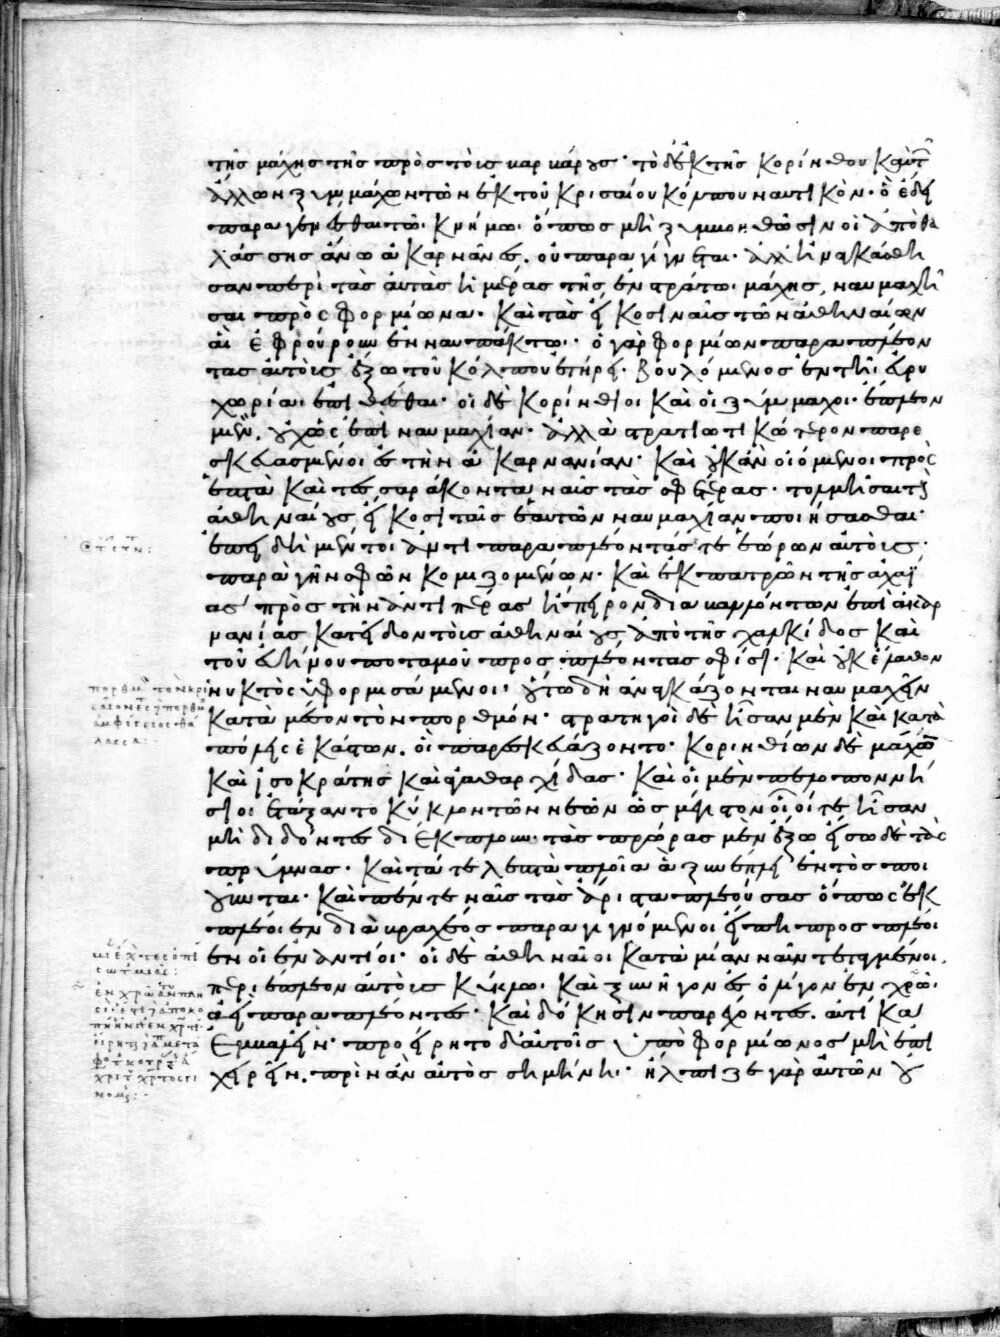 τῆς μάχης τῆς πρὸς τοὺς καρκάρους· τὸ δ' ἐκ τῆς Κορίνθου καὶ τῶν
ἄλλων ξυμμάχων τῶν ἐκ τοῦ Κρισαίου κόλπου ναυτικὸν· ὃ ἔδει
παραγενέσθαι τῶ Κνήμω· ὅπως μὴ ξυμβοηθῶσιν οἱ ἀπὸ θα
λάσσης ἄνω ἀκαρνᾶνες. οὐ παραγίγνεται. ἀλλ' ἠναγκάσθη
σαν περὶ τὰς αὐτὰς ἡμέρας τῆς ἐν στράτω μάχης, ναυμαχῆ
σαι πρὸς φορμίωνα· καὶ τὰς εἴκοσι ναῦς τῶν ἀθηναίων
αἳ ἐφρούρουν ἐν ναυπάκτω· ὁ γὰρ φορμίων παραπλέον
τας αὐτοὺς ἔξω τοῦ κόλπου ἐτήρει· βουλόμενος ἐν τῆ εὐρυ
χωρία ἐπιθέσθαι· οἱ δὲ κορίνθιοι καὶ οἱ ξύμμαχοι ἔπλεον
μὲν. οὐχ ὡς ἐπὶ ναυμαχίαν. ἀλλὰ στρατιωτικώτερον παρε
σκευασμένοι ἐς τὴν ἀκαρνανίαν· καὶ οὐκ ἂν οἰόμενοι πρὸς
ἑπτὰ καὶ τεσσαράκοντα ναῦς τὰς σφετέρας· τολμῆσαι τοὺς
ἀθηναίους εἴκοσι ταῖς ἑαυτῶν ναυμαχίαν ποιήσασθαι·
ἐπειδὴ μέντοι ἀντιπαραπλέοντάς τε ἑώρων αὐτοὺς.
παρὰ γῆν σφῶν κομιζομένων· καὶ ἐκ πατρῶν τῆς ἀχαΐ
ας πρὸς τὴν ἀντιπέρας ἤπειρον διαβαλλόντων ἐπὶ ἀκαρ
νανίας κατεῖδον τοὺς ἀθηναίους ἀπὸ τῆς χαλκίδος καὶ
τοῦ εὐήνου ποταμοῦ προσπλέοντας σφίσι. καὶ οὐκ ἔλαθον
νυκτὸς ὑφορμισάμενοι. οὕτω δὴ ἀναγκάζονται ναυμαχεῖν
κατὰ μέσον τὸν πορθμόν· στρατηγοὶ δὲ ἦσαν μὲν καὶ κατὰ
πόλεις ἑκάστων. οἳ παρεσκευάζοντο. κορινθίων δὲ μαχάων
καὶ ἰσοκράτης καὶ ἀγαθαρχίδας· καὶ οἱ μὲν πελοποννή
σιοι ἐτάξαντο κύκλον τῶν νεῶν ὡς μέγιστον οἷοί τε ἦσαν
μὴ διδόντες διέκπλουν· τὰς πρώρας μὲν ἔξω εἴσω δὲ τὰς
πρύμνας· καὶ τά τε λεπτὰ πλοῖα ἃ ξυνέπλει ἐντὸς ποι
οῦνται· καὶ πέντε ναῦς τὰς ἄριστα πλεούσας ὅπως ἐκ
πλέοιεν διὰ βραχέος παραγιγνόμενοι εἴ πη προσπλέοι
εν οἱ ἐναντίοι· οἱ δὲ ἀθηναῖοι κατὰ μίαν ναῦν τεταγμένοι.
περιέπλεον αὐτοὺς κύκλω· καὶ ξυνῆγον ἐς ὀλίγον ἐν χρῶ
ἀεὶ παραπλέοντες. καὶ δόκησιν παρέχοντες. αὐτίκα
ἐμβαλεῖν· προείρητο δ' αὐτοῖς ὑπὸ φορμίωνος μὴ ἐπι
χειρεῖν. πρὶν ἂν αὐτὸς σημήνη. ἤλπιζε γὰρ αὐτῶν οὐ